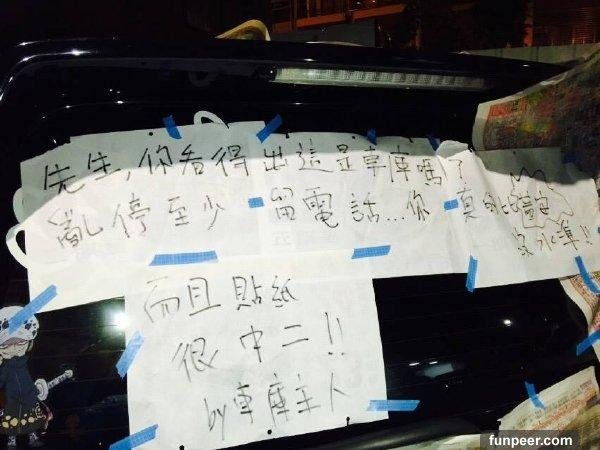 先生,你看得出這是車庫嗎?
亂停至少 留電話...你 真的 水準!!
而且貼紙
很中二!!
by車庫主人
funpeer.com